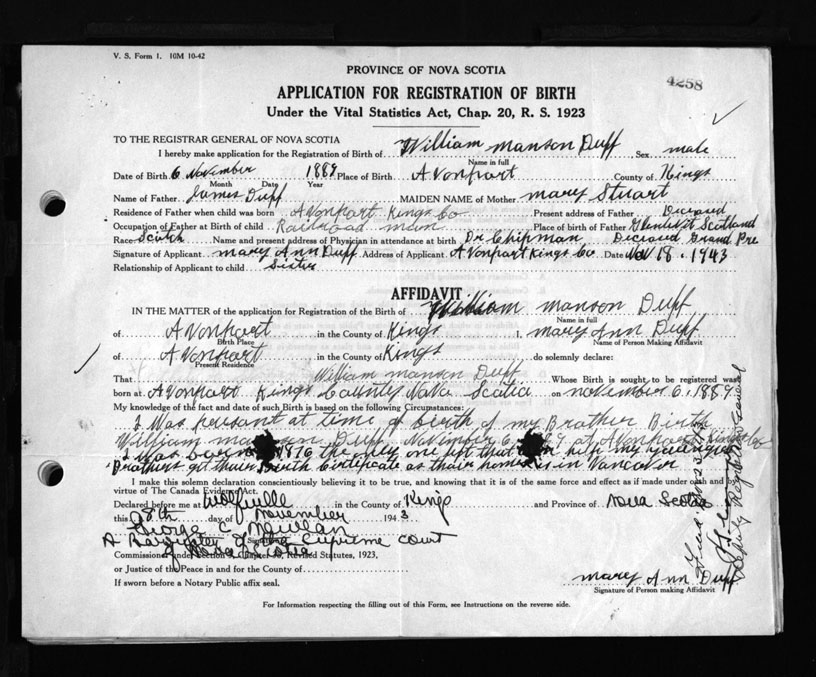 V. S. Form 1. 10M 10-42
PROVINCE OF NOVA SCOTIA
4258
APPLICATION FOR REGISTRATION OF BIRTH
Under the Vital Statistics Act, Chap. 20, R. S. 1923
TO THE REGISTRAR GENERAL OF NOVA SCOTIA
I hereby make application for the Registration of Birth of William Manson Duff Sex male
Name in full
Date of Birth 6 November 1889 Place of Birth Avonport County of Kings
Month Date Year
Name of Father James Duff MAIDEN NAME of Mother Mary Stuart
Residence of Father when child was born Avonport Kings Co Present address of Father Deceased
Occupation of Father at Birth of child Railroad man Place of birth of Father Scotland
Race Scotch Name and present address of Physician in attendance at birth Dr Chipman Deceased Grand Pre
Signature of Applicant Mary Ann Duff Address of Applicant Avonport Kings Co Date Nov 18. 1943
Relationship of Applicant to child Sister
AFFIDAVIT
IN THE MATTER of the application for Registration of the Birth of William Manson Duff
Name in full
of Avonport in the County of Kings I, Mary Ann Duff
Birth Place Name of Person Making Affidavit
of Avonport in the County of Kings do solemnly declare:
Present Residence
That William Manson Duff Whose Birth is sought to be registered was
born at Avonport Kings County Nova Scotia on November 6, 1889
My knowledge of the fact and date of such Birth is based on the following Circumstances:
I Was at time of birth of my Brother Birth
William Duff November 6 at Avonport Kings Co
I was born 1876 the only one left that can help my younger
Brothers get thair Birth Certificate as thair homes is in Vancover
I make this solemn declaration conscientiously believing it to be true, and knowing that it is of the same force and effect as if made under oath and by
virtue of The Canada Evidence Act.
Declared before me at Wolfville in the County of Kings and Province of Nova Scotia
this 18th day of November 1943
George C
A Barrister of the Supreme Court
of Nova Scotia
Commissioner under Section Chapter Revised Statutes, 1923,
or Justice of the Peace in and for the County of
If sworn before a Notary Public affix seal.
Mary Ann Duff
Signature of Person making Affidavit
Deputy Registrar General
For Information respecting the filling out of this Form, see Instructions on the reverse side.